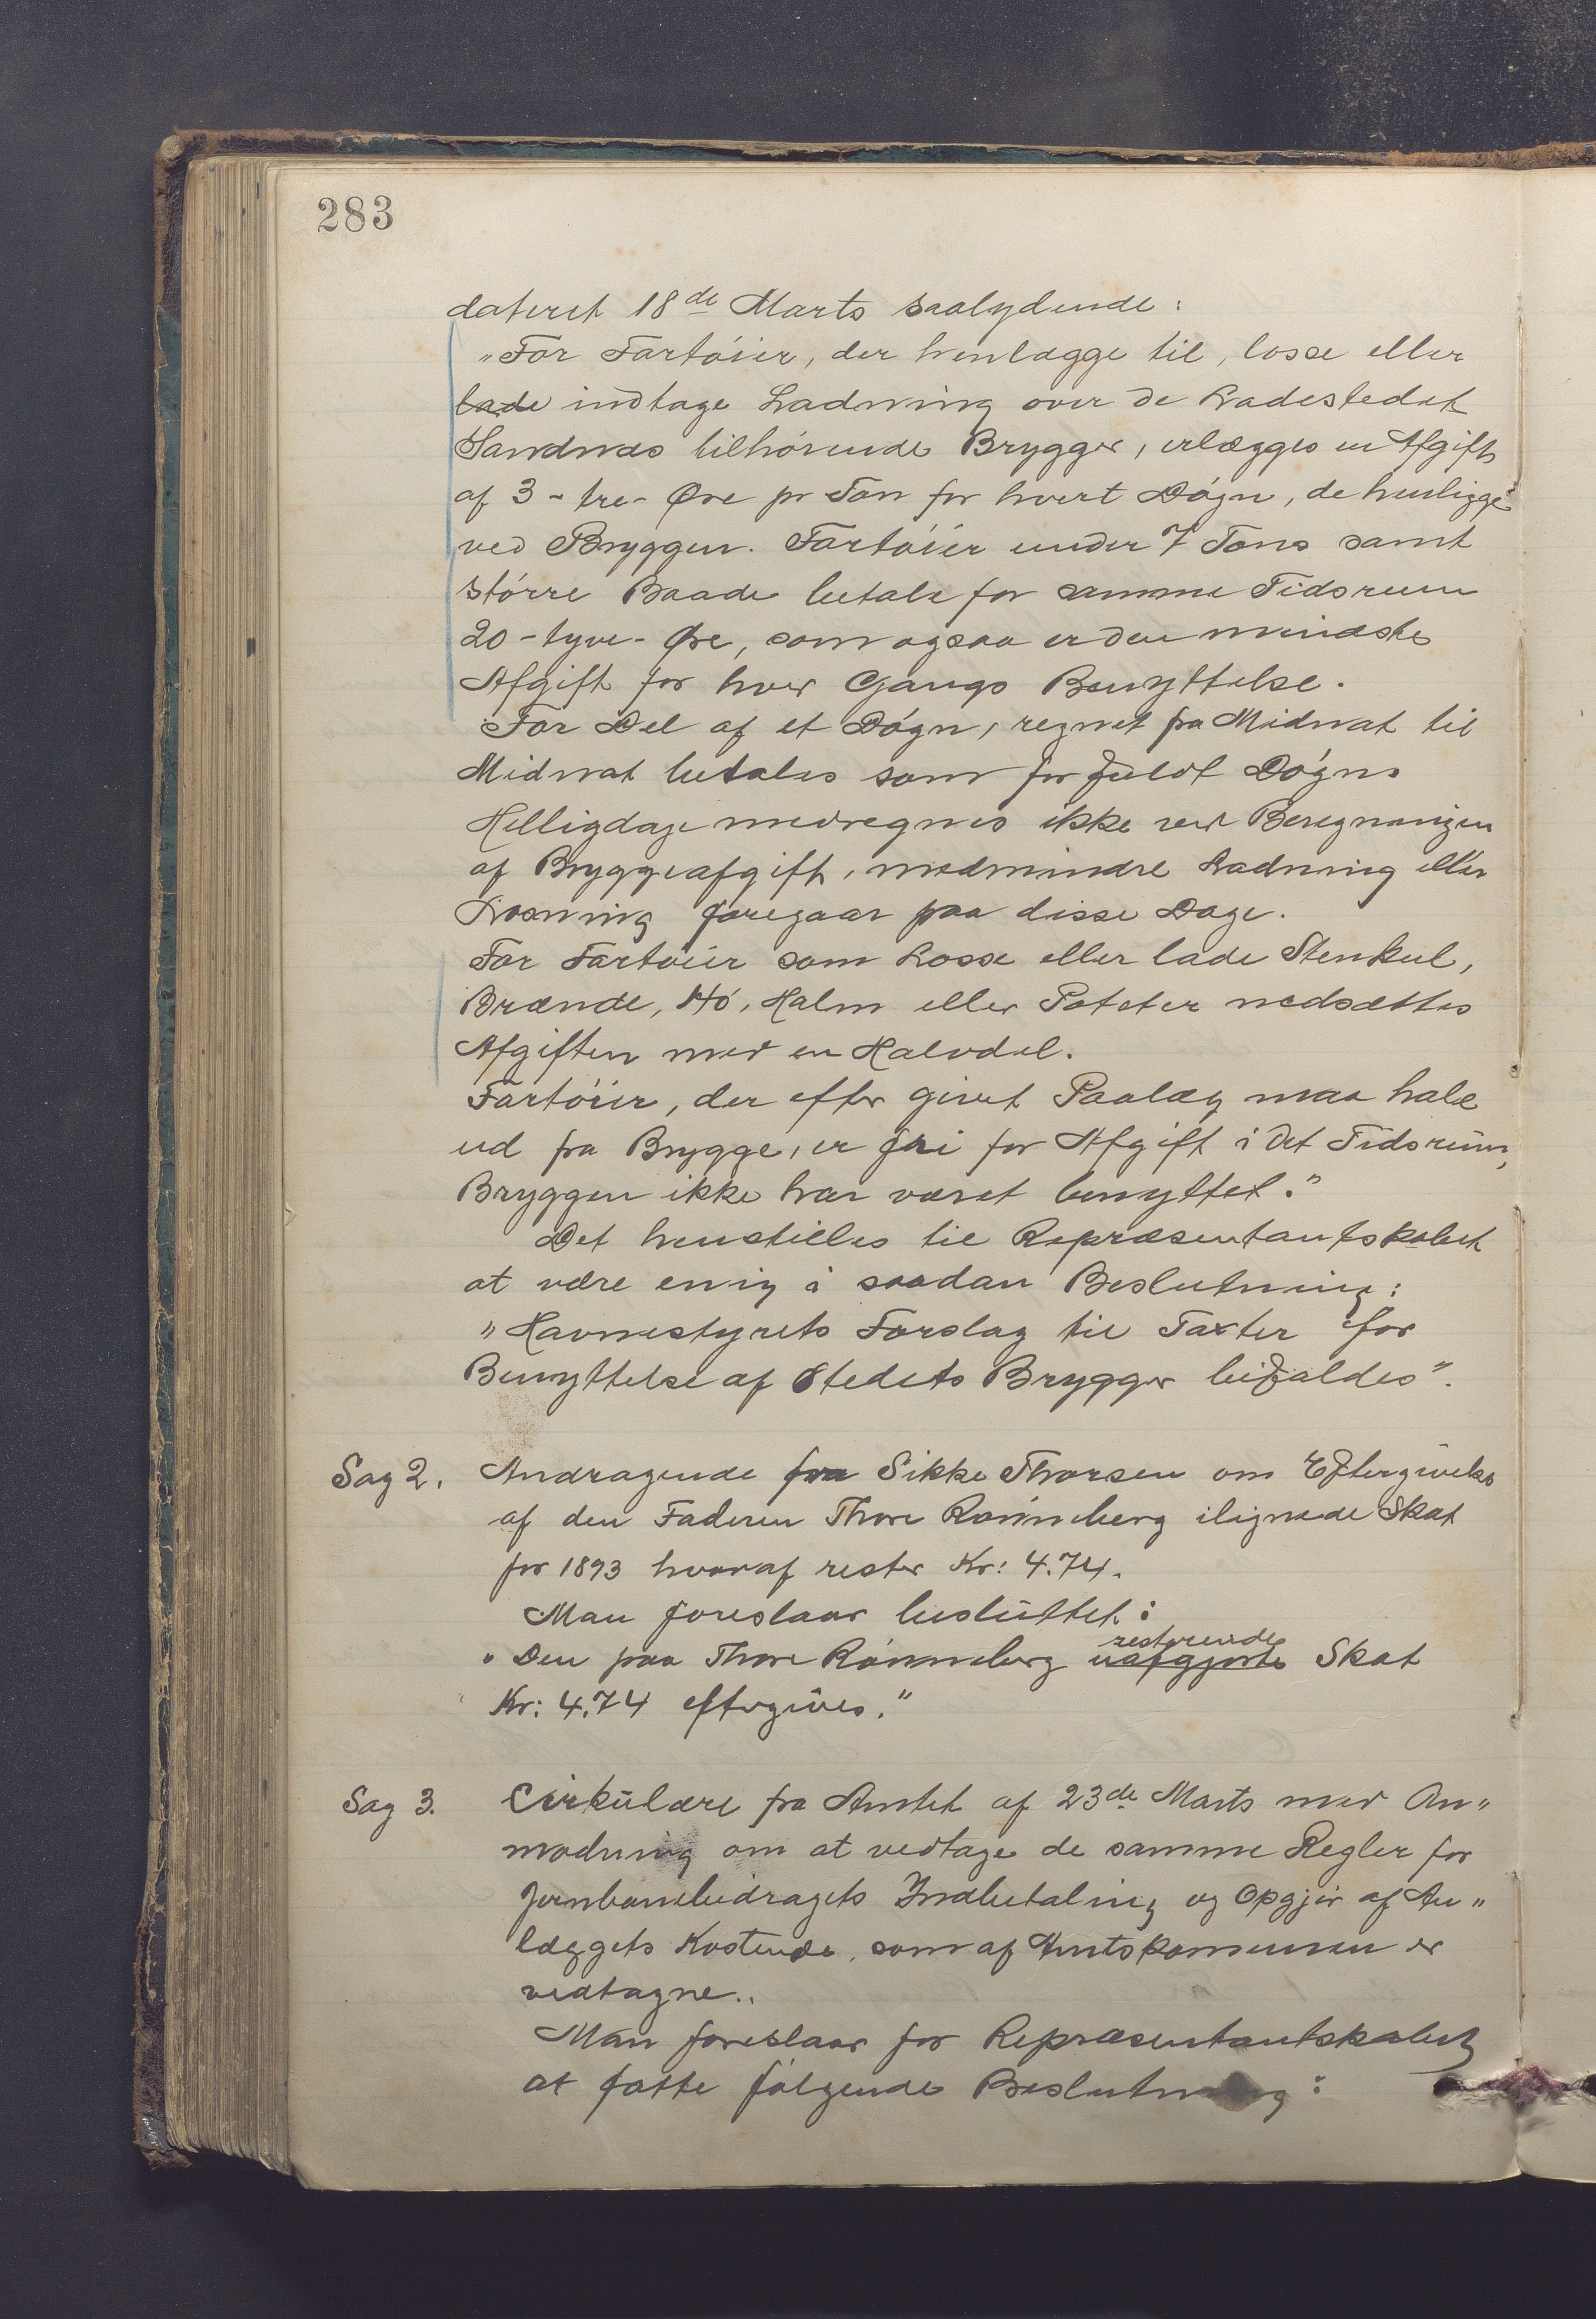 283
dateret 18de Marts saalydende:
"For Fartøier, der henlægge til, losse eller
lade indtage Ladning over de Ladestedet
Sandnæs tilhørende Brygger, erlægges en Afgift
af 3 - tre - Øre pr Ton for hvert Døgn, de henligge
ved Bryggen. Fartøier under 7 Tons samt
større Baade betale for samme Tidsrum
20 - tyve - Øre, som ogsaa er den mindste
Afgift for hver Gangs Benyttelse.
For Del af et Døgn, regnet fra Midnat til
Midnat betales som for fuldt Døgn.
Helligdage medregnes ikke ved Beregningen
af Bryggeafgift, medmindre Ladning eller
Losning foregaar paa disse Dage.
For Fartøier som Losse eller lade Stenkul,
Brænde, Hø, Halm eller Poteter nedsættes
Afgiften med en Halvdel.
Fartøier, der efter givet Paalæg maa hale
ud fra Brygge, er fri for Afgift i det Tidsrum,
Bryggen ikke har været benyttet."
Det henstilles til Repræsentantskabet
at være enig i saadan Beslutning:
"Havnestyrets Forslag til Taxter for
Benyttelse af Stedets Brygger bifaldes".
Sag 2. Andragende fra Sikke Thorsen om Eftergivelse
af den Faderen Thore Rønneberg ilignede Skat
for 1893 hvoraf rester Kr: 4.74.
Man foreslaar besluttet:
"Den paa Thore Rønneberg uafgjorte resterende Skat
Kr: 4.74 eftergives."
Sag 3. Cirkulære fra Amtet af 23de Marts med An"
modning om at vedtage de samme Regler for
Jernbanebidragets Indbetaling og Opgjør af An"
læggets Kostende, som af Amtskommunen er
vedtagne.
Man foreslaar for Repræsentantskabet
at fatte følgende Beslutning: